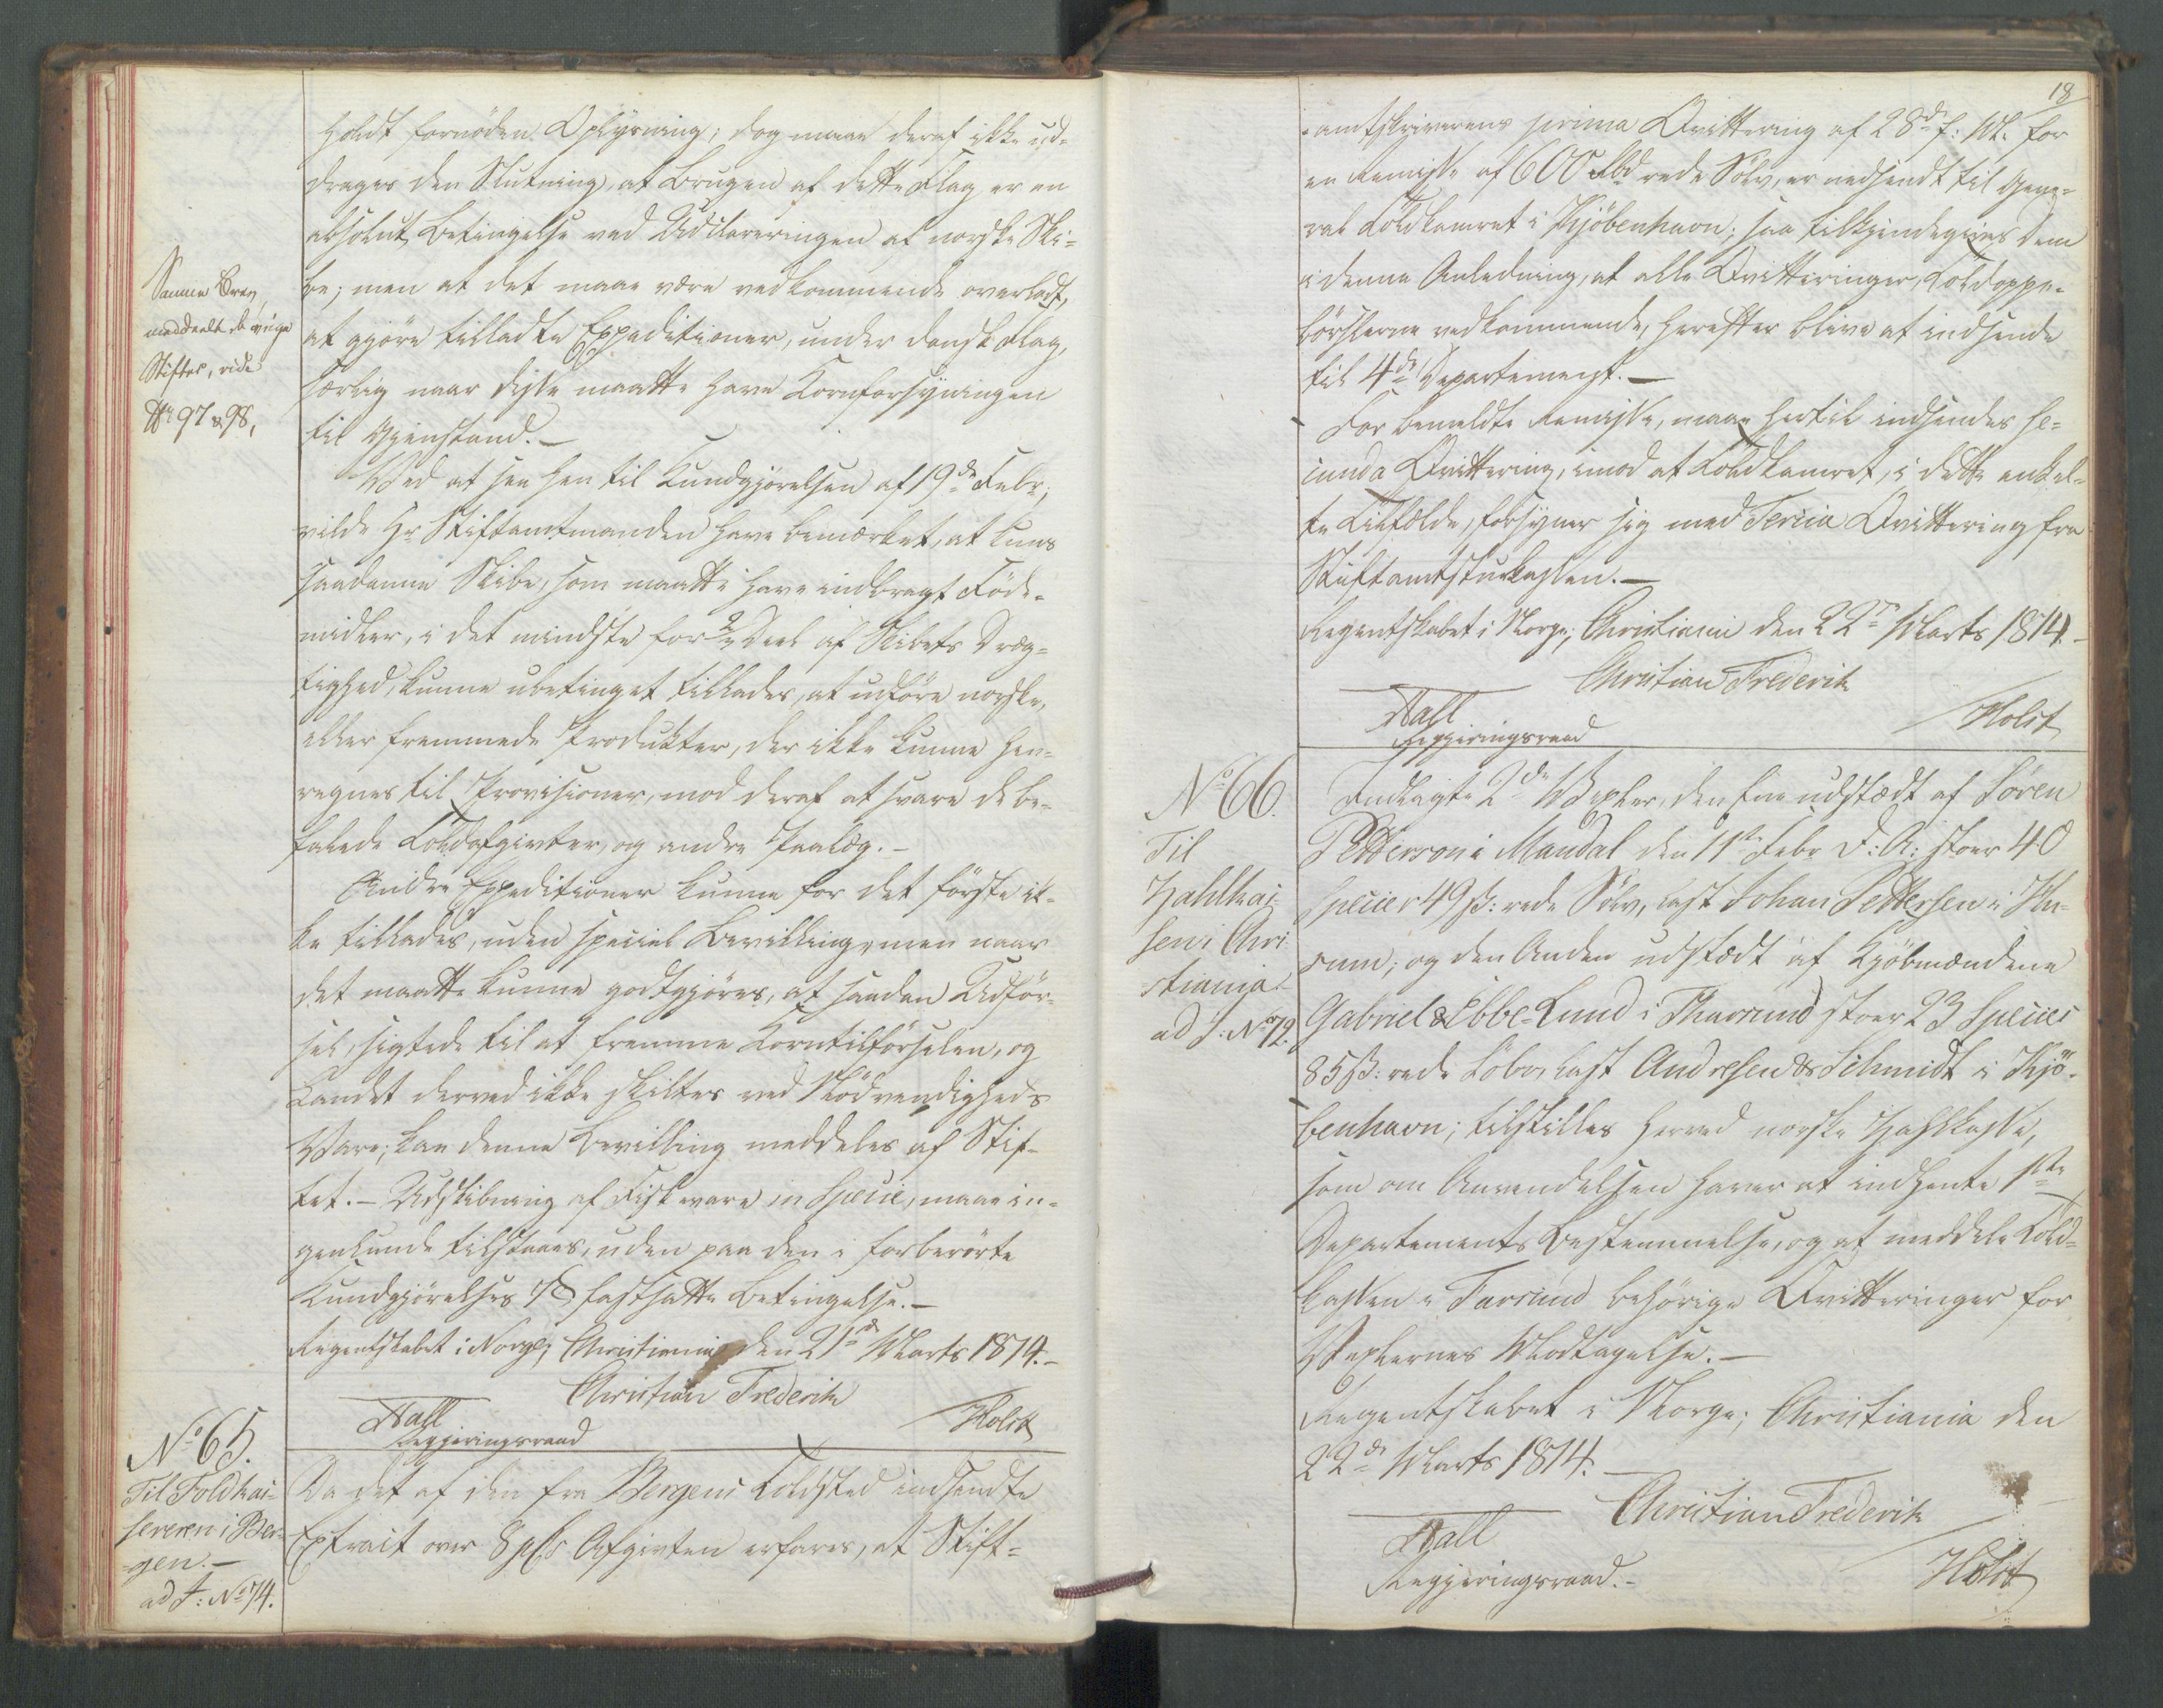 holdt fornöden Oplysning; dog maae deraf ikke ud-
drages den Slutning, at Brugen af dette Flag er en
absolut Betingelse ved Udclareringen af norske Ski-
be; men at det maae være vedkommende overladt,
at gjöre tilladte Expeditioner, under dansk Flag,
særlig naar disse maatte have Kornforsyningen
til Gjenstand.—
Samme Brev
meddeelt de övrige
Stifter, vide
No 97 & 98,
Ved at see hen til Kundgjörelsen af 19de Febr;
vilde Hr Stiftamtmanden have bemærket, at kuns
saadanne Skibe, som maatte have indbragt Föde-
midler, i det mindste for Deel af Skibets Dræg-
tighed, kunne ubetinget tillades, at udföre norske,
eller fremmede Produkter, der ikke kunne hen-
regnes til Provisioner, mod deraf at svare de be-
falede Toldafgivter, og andre Paalæg.—
Andre Expeditioner kunne for det förste ik-
ke tillades, uden speciel Bevilling, men naar
det maatte kunne godtgjöres, at saadan Udför-
sel, sigtede til at fremme Korntilförselen, og
Landet derved ikke skiltes ved Nödvendigheds
Vare; kan denne Bevilling meddeles af Stif-
tet.— Udskibning af Fiskevare in Specie, maae in-
genlunde tilstaaes, uden paa den i forberörte
Kundgjörelses § fastsatte Betingelse.—
Regentskabet i Norge; Christiania den 21de Marts 1814.—
Christian Frederik
Aall
Regjeringsraad
Holst
No 65.
Til Toldkas-
sereren i Ber-
gen.—
ad J: No 74.
Da det af den fra Bergens Toldsted indsendte
Extract over Afgivten erfares, at Stift-
18
amtskriverens prima Qvittering af 28de f: M. for
en Remisse af 600 Rbd rede Sölv, er nedsendt til Gene-
ral Toldkamret i Kjöbenhavn; saa tilkjendegives dem
i denne Anledning, at alle Qvitteringer, Toldoppe-
börslerne vedkommende, herefter blive at indsende
til 4de Departement.—
For bemeldte Remisse, maae hertil indsendes se-
cunda Qvittering, imod at Toldkamret, i dette enkel-
te Tilfælde, forsynes sig med Tercia Qvittering fra
Stiftamtstuekassen.—
Regentskabet i Norge; Christiania den 22de Marts 1814.—
Christian Frederik
Aall
Regjeringsraad
Holst
No 66.
Til
Zahlkas-
sen i Chri-
stiania
ad J: No 72.
Indlagte 2de Vexler, den Ene udstædt af Sören
Pettersson i Mandal den 11te Febr d: A: stor 40
Specier 49 ß: rede Sölv, paa Johan Pettersen i Hu-
sum; og den Anden udstædt af Kjöbmændene
Gabriel & Ebbe Lund i Tharsund stor 23 Specier
85 ß: rede Sölv, paa Andresen & Schmidt i Kjö-
benhavn; tilstilles herved norske Zahlkasse,
som om Anvendelsen haver at indhente 1ste
Departements Bestemmelse, og at meddele Told-
kassen i Farsund behörige Qvitteringer for
Vexlernes Modtagelse.—
Regentskabet i Norge; Christiania den
22de Marts 1814.
Christian Frederik
Aall
Regjeringsraad.—
Holst